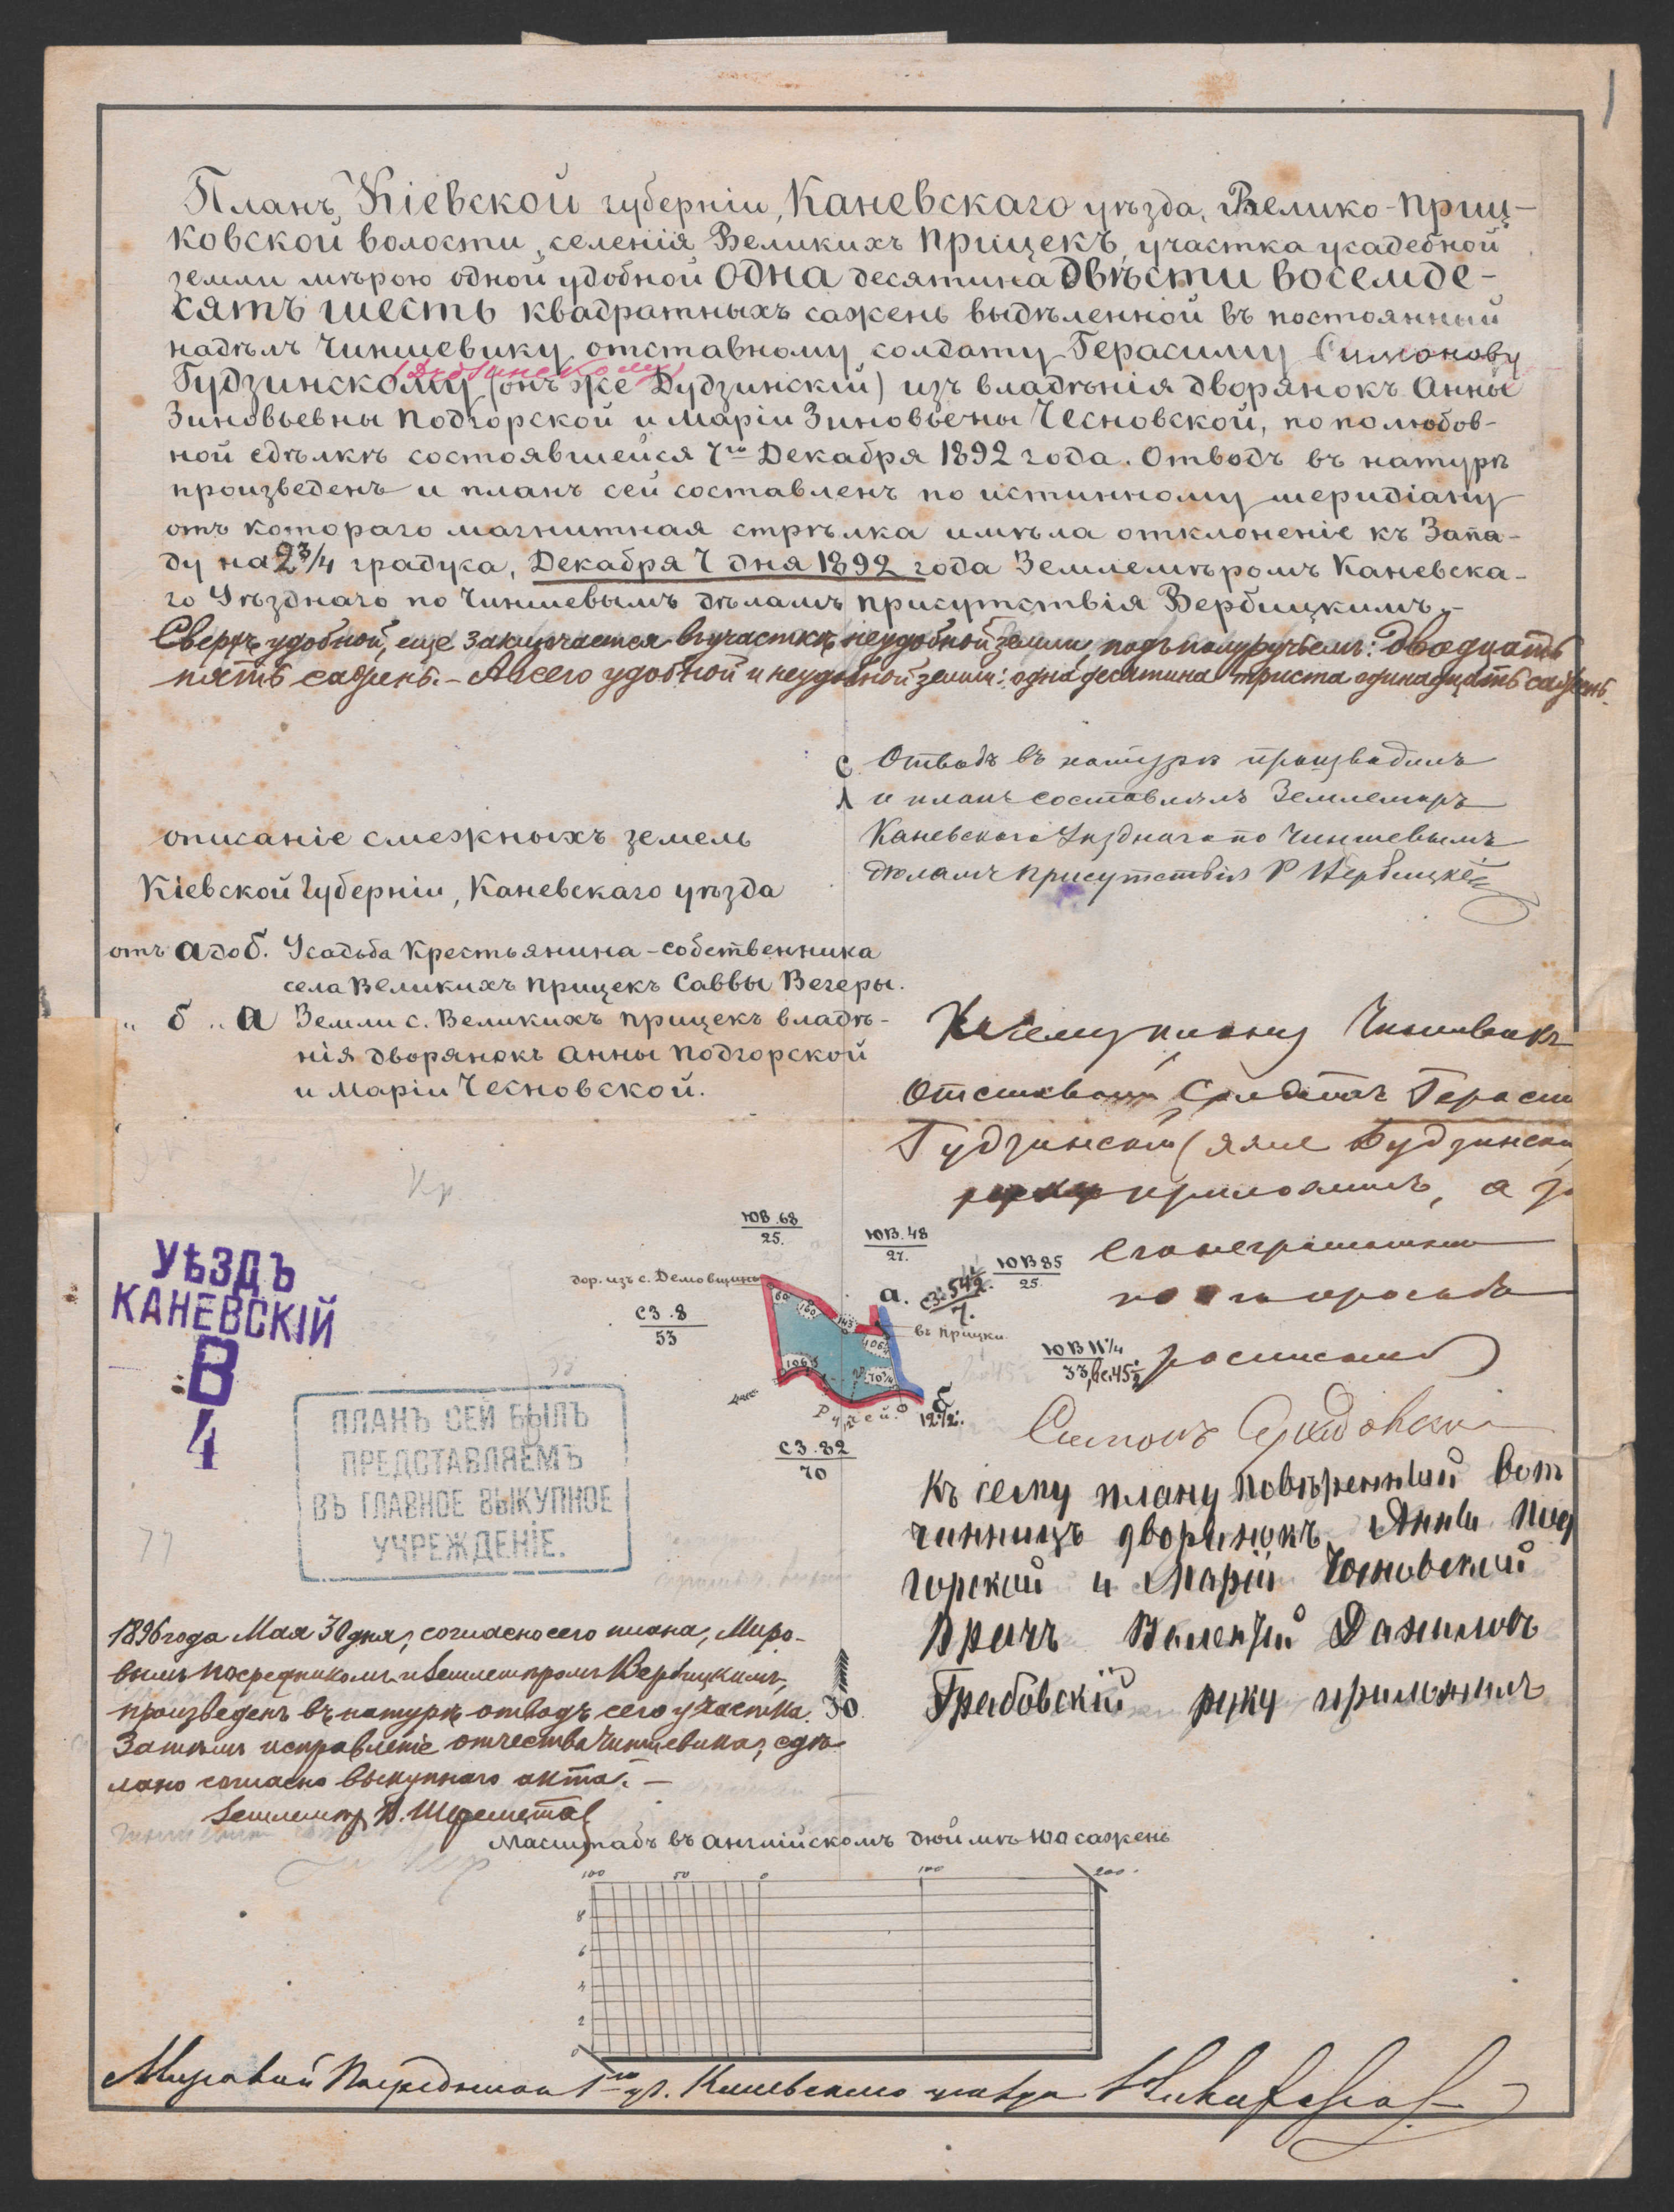 Планъ, Кіевской губерніи, Каневскаго уѣзда, Велико-Приц-
ковской волости, селенія Великихъ Прицекъ, участка усадебной
земли мѣрою одной удобной одна десятина двѣсти восемде-
сятъ шесть квадратныхъ сажень выдѣленной въ постоянный
надѣлъ чиншевику отставному солдату Герасиму Симонову
Гудзинскому (онъ же Дудзинскій) изъ владѣнія дворянокъ Анны
Зиновьевны Подгорской и Маріи Зиновьевны Чесновской, по полюбов-
ной сдѣлкѣ состоявшейся 7го Декабря 1892 года. Отводъ въ натурѣ
произведенъ и планъ сей составленъ по истинному меридіану
отъ котораго магнитная стрѣлка имѣла отклоненіе къ Запа-
ду на 2 3/4 градуса, Декабря 7 дня 1892 года Землемѣромъ Каневска-
го Уѣзднаго по чиншевымъ дѣламъ присутствія Вербицкимъ.-
Сверхъ удобной, еще заключается въ участкѣ неудобной земли, подъ полуручьемъ: двадцать
пять сажень. - А всего удобной и неудобной земли: одна десятина триста одинадцать сажень.
С Отводъ въ натурѣ производилъ
и планъ составлялъ Землемѣръ
Каневскаго Уѣзднаго по чиншевымъ
дѣламъ присутствія Р Вербицкій
описаніе смежныхъ земель
Кіевской Губерніи, Каневскаго уѣзда
отъ а до б. Усадьба крестьянина-собственника
села Великихъ Прицекъ Саввы Вечеры.
" б " а Земли с. Великихъ Прицекъ владѣ-
нія дворянокъ Анны Подгорской
и Маріи Чесновской.
Къ сему плану Чиншевикъ
Отставной Солдатъ Гераси
Гудзинскій (онъ же Дудзински
руку приложилъ, а за
его неграмотнаго
по его просьбѣ
росписался
Симонъ
Кр
ЮВ.68
25.
ЮВ.48
27.
СЗ.54½
7.
ЮВ 85
25.
дор. изъ с. Демовщины
СЗ.8
53
а.
въ Прицки.
ЮВ 11¼
33, вс.45½
60
160
143
106
106½
70¼
Ручей.
б
12½.
СЗ.82
70
УѢЗДЪ
КАНЕВСКІЙ
В
4
ПЛАНЪ СЕЙ БЫЛЪ
ПРЕДСТАВЛЯЕМЪ
ВЪ ГЛАВНОЕ ВЫКУПНОЕ
УЧРЕЖДЕНІЕ.
77
Къ сему плану повѣренный вот
чинницъ дворянокъ Анны Под
горской и Маріи Чесновской
Врачъ Валентій Даниловъ
Грабовскій руку приложилъ
1896 года Мая 30 дня, согласно сего плана, Миро-
вымъ посредникомъ и Землемѣромъ Вербицкимъ,
произведенъ въ натурѣ отводъ сего участка.
Затѣмъ исправленіе отчества чиншевика, сдѣ-
лано согласно выкупнаго акта. -
Землемѣр В. Шереметов
Ю
Масштабъ въ англійскомъ дюймѣ 100 сажень
100 50 0 100 200.
8
6
4
2
0
Мировой Посредникъ 1го уч. Каневскаго уѣзда Никифоров